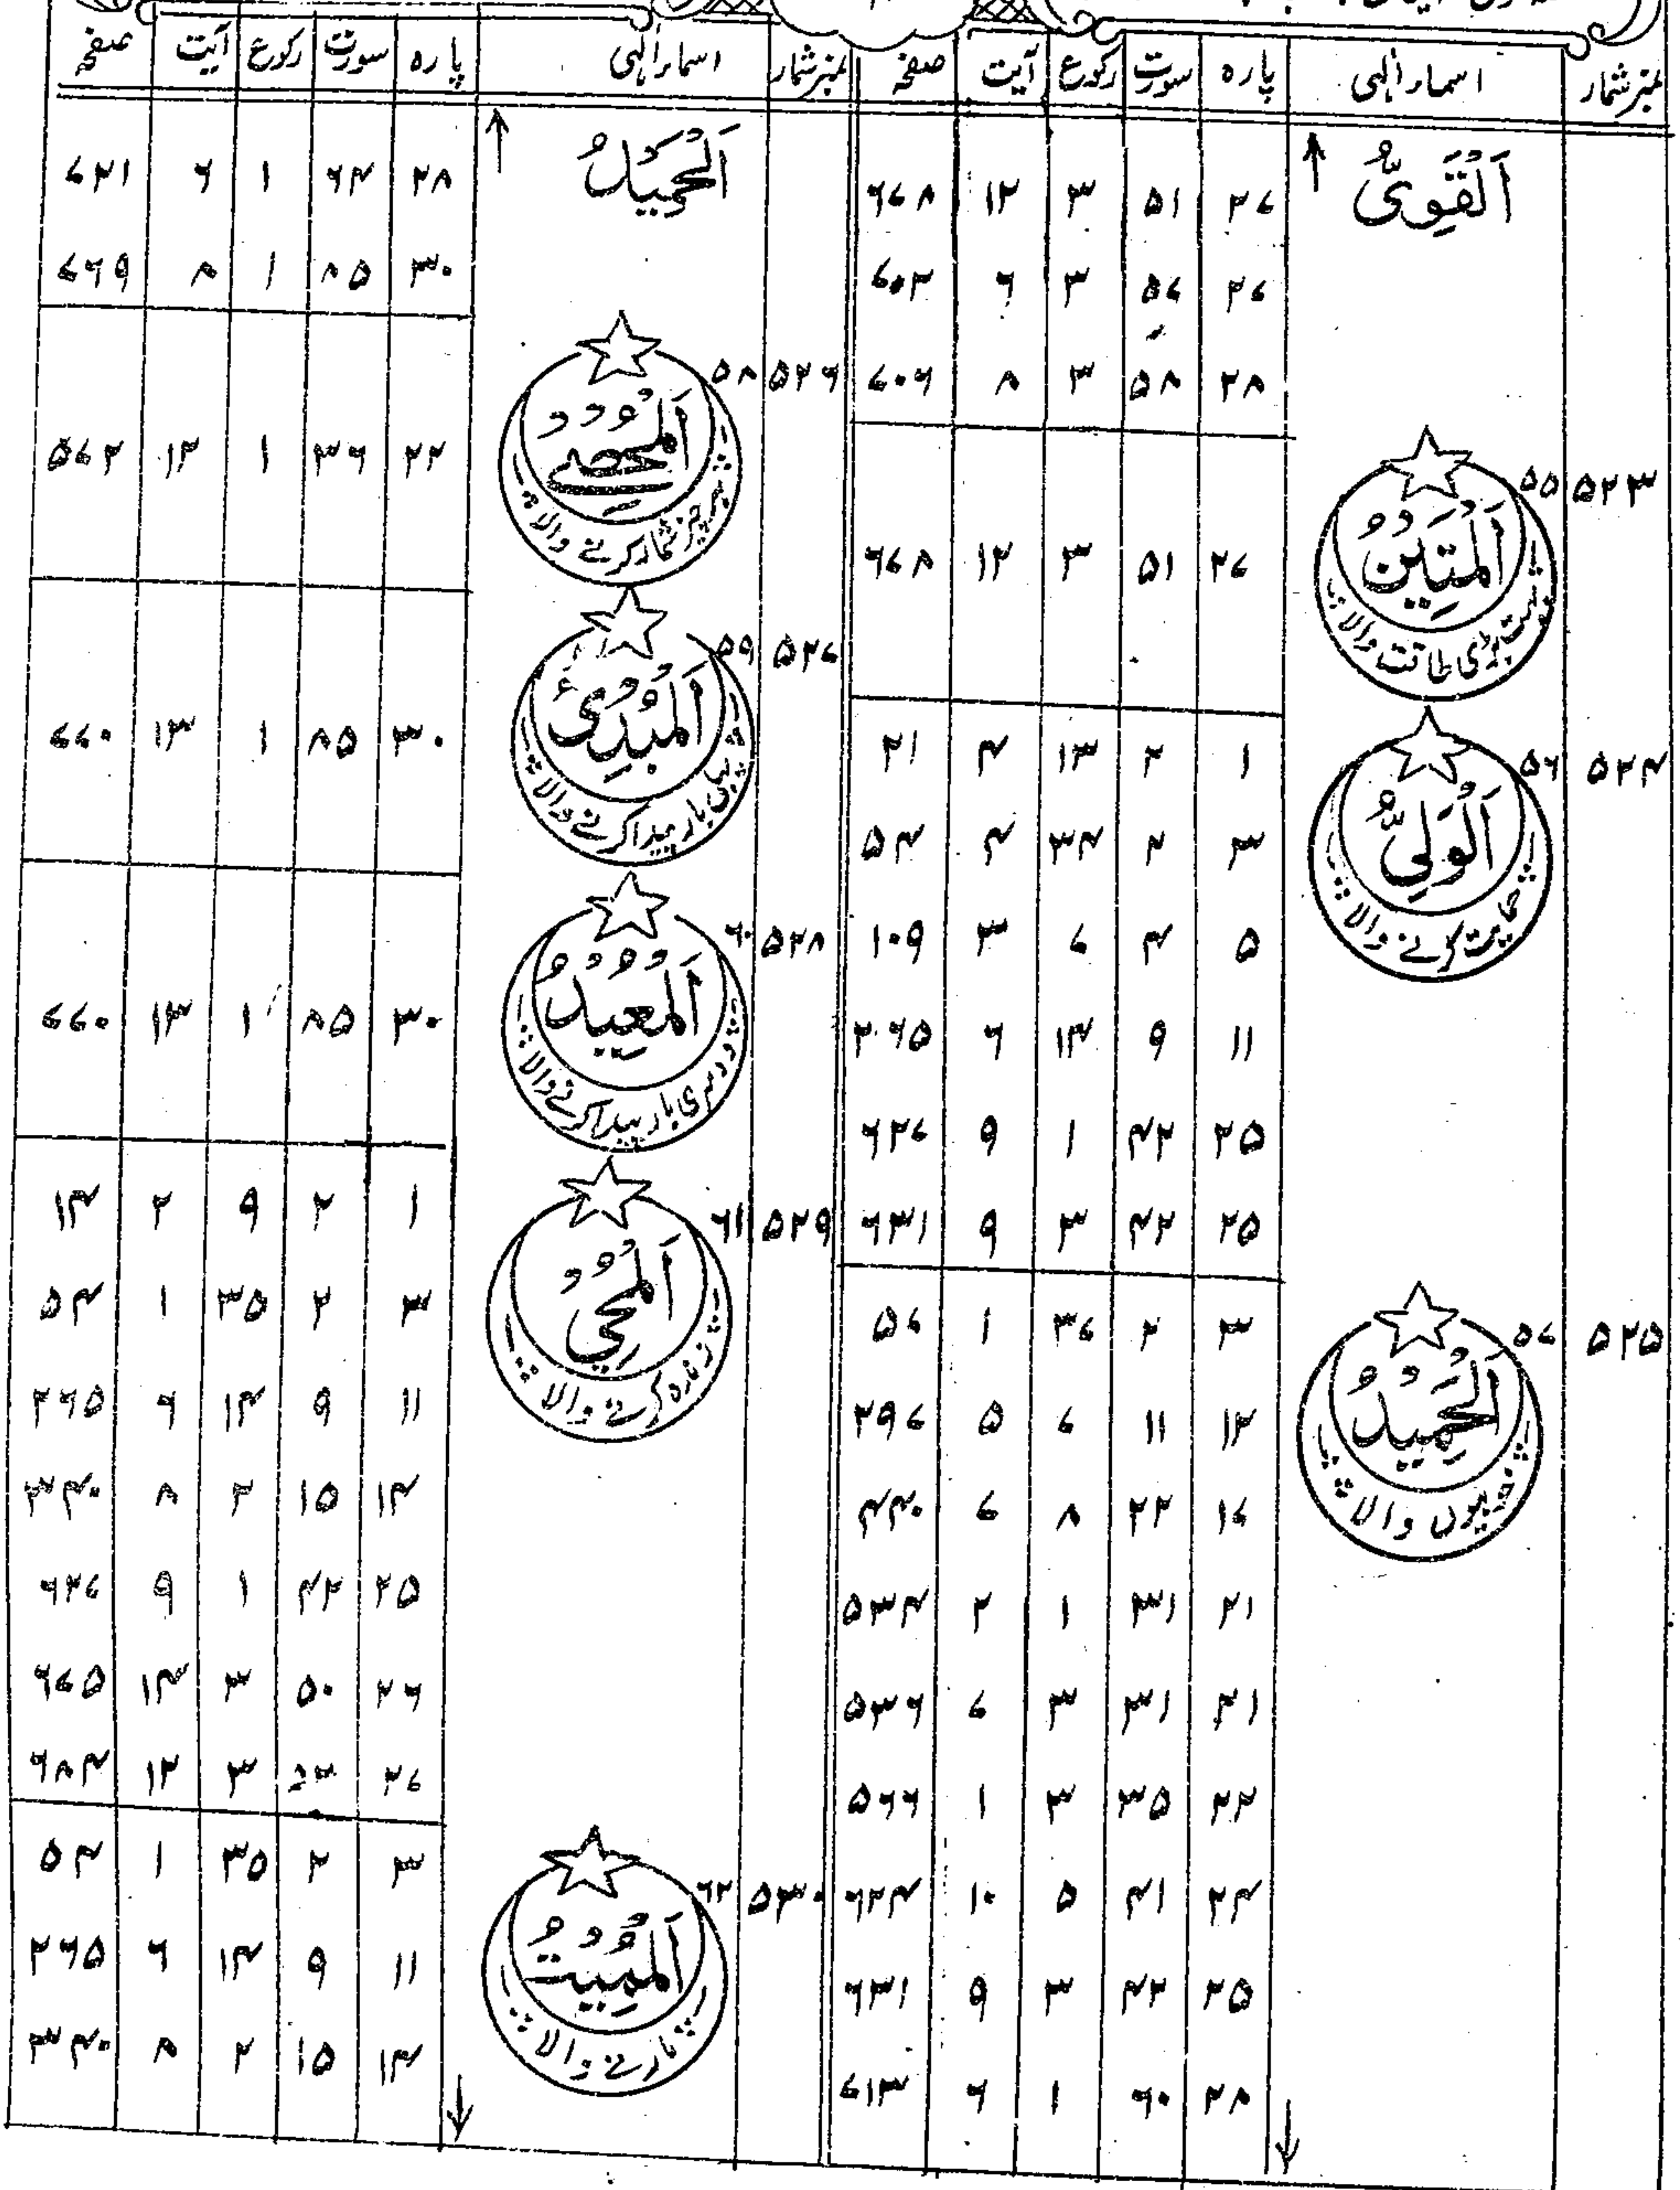 نمبرشمار اسماءِ الٰہی پارہ سورت رکوع آیت صفحہ
اَلْقَوِیُّ ↑ ۲۷ ۵۱ ۳ ۱۲ ۶۷۸
۲۷ ۵۷ ۳ ۶ ۷۰۲
۲۸ ۵۸ ۳ ۸ ۷۰۶
۵۲۳ ۵۵ اَلْمَتِیْنُ بہت بڑی طاقت والا ۲۷ ۵۱ ۳ ۱۲ ۶۷۸
۵۲۴ ۵۶ اَلْوَلِیُّ حمایت کرنے والا ۱ ۲ ۱۳ ۴ ۲۱
۳ ۲ ۳۴ ۴ ۵۴
۵ ۴ ۷ ۳ ۱۰۹
۱۱ ۹ ۱۴ ۶ ۲۶۵
۲۵ ۴۲ ۱ ۹ ۶۲۷
۲۵ ۴۲ ۳ ۹ ۶۳۱
۵۲۵ ۵۷ اَلْحَمِیْدُ خوبیوں والا ۳ ۲ ۳۷ ۱ ۵۷
۱۲ ۱۱ ۷ ۵ ۲۹۷
۱۷ ۲۲ ۸ ۷ ۴۴۰
۲۱ ۳۱ ۱ ۲ ۵۳۴
۲۱ ۳۱ ۳ ۷ ۵۳۶
۲۲ ۳۵ ۳ ۱ ۵۶۶
۲۴ ۴۱ ۵ ۱۰ ۶۲۴
۲۵ ۴۲ ۳ ۹ ۶۳۱
↓ ۲۸ ۶۰ ۱ ۶ ۷۱۳
نمبرشمار اسماءِ الٰہی پارہ سورت رکوع آیت صفحہ
اَلْحَمِیْدُ ↑ ۲۸ ۶۴ ۱ ۶ ۷۲۱
۳۰ ۸۵ ۱ ۸ ۷۶۹
۵۲۶ ۵۸ اَلْمُحْصِیْ ہر چیز شمار کرنے والا ۲۲ ۳۶ ۱ ۱۲ ۵۷۲
۵۲۷ ۵۹ اَلْمُبْدِیُٔ پہلی بار پیدا کرنے والا ۳۰ ۸۵ ۱ ۱۳ ۷۷۰
۵۲۸ ۶۰ اَلْمُعِیْدُ دوسری بار پیدا کرنے والا ۳۰ ۸۵ ۱ ۱۳ ۷۷۰
۵۲۹ ۶۱ اَلْمُحْیِ زندہ کرنے والا ۱ ۲ ۹ ۲ ۱۴
۳ ۲ ۳۵ ۱ ۵۴
۱۱ ۹ ۱۴ ۶ ۲۶۵
۱۴ ۱۵ ۲ ۸ ۳۴۰
۲۵ ۴۲ ۱ ۹ ۶۲۷
۲۶ ۵۰ ۳ ۱۴ ۶۷۵
۲۷ ۵۳ ۳ ۱۲ ۶۸۴
۵۳۰ ۶۲ اَلْمُمِیْتُ مارنے والا ۳ ۲ ۳۵ ۱ ۵۴
۱۱ ۹ ۱۴ ۶ ۲۶۵
↓ ۱۴ ۱۵ ۲ ۸ ۳۴۰